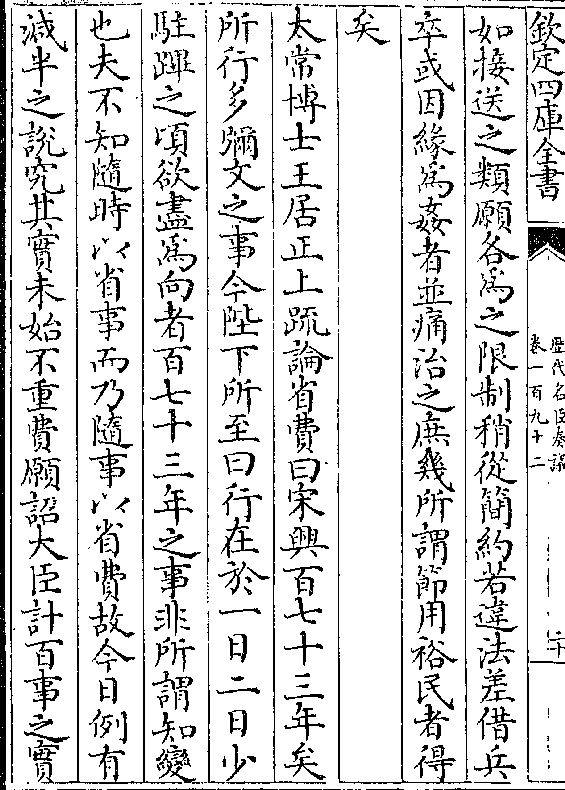 欽定四庫全書
歴代名臣奏議
卷一百九十二
二十
如接送之類願各爲之限制稍從簡約若違法差借兵
卒或因緣爲姦者並痛治之庶幾所謂節用裕民者得
矣
太常博士王居正上疏論省費曰宋興百七十三年矣
所行多彌文之事今陛下所至曰行在於一日二日少
駐蹕之頃欲盡爲向者百七十三年之事非所謂知變
也夫不知隨時以省事而乃隨事以省費故今日例有
減半之説究其實未始不重費願詔大臣計百事之實